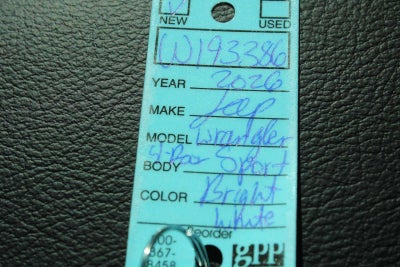 NEW USED
(W)193386
YEAR 2026
MAKE Jeep
MODEL Wrangler
BODY Sport
COLOR Bright
White
eorder
00-
867-
8458
gpp